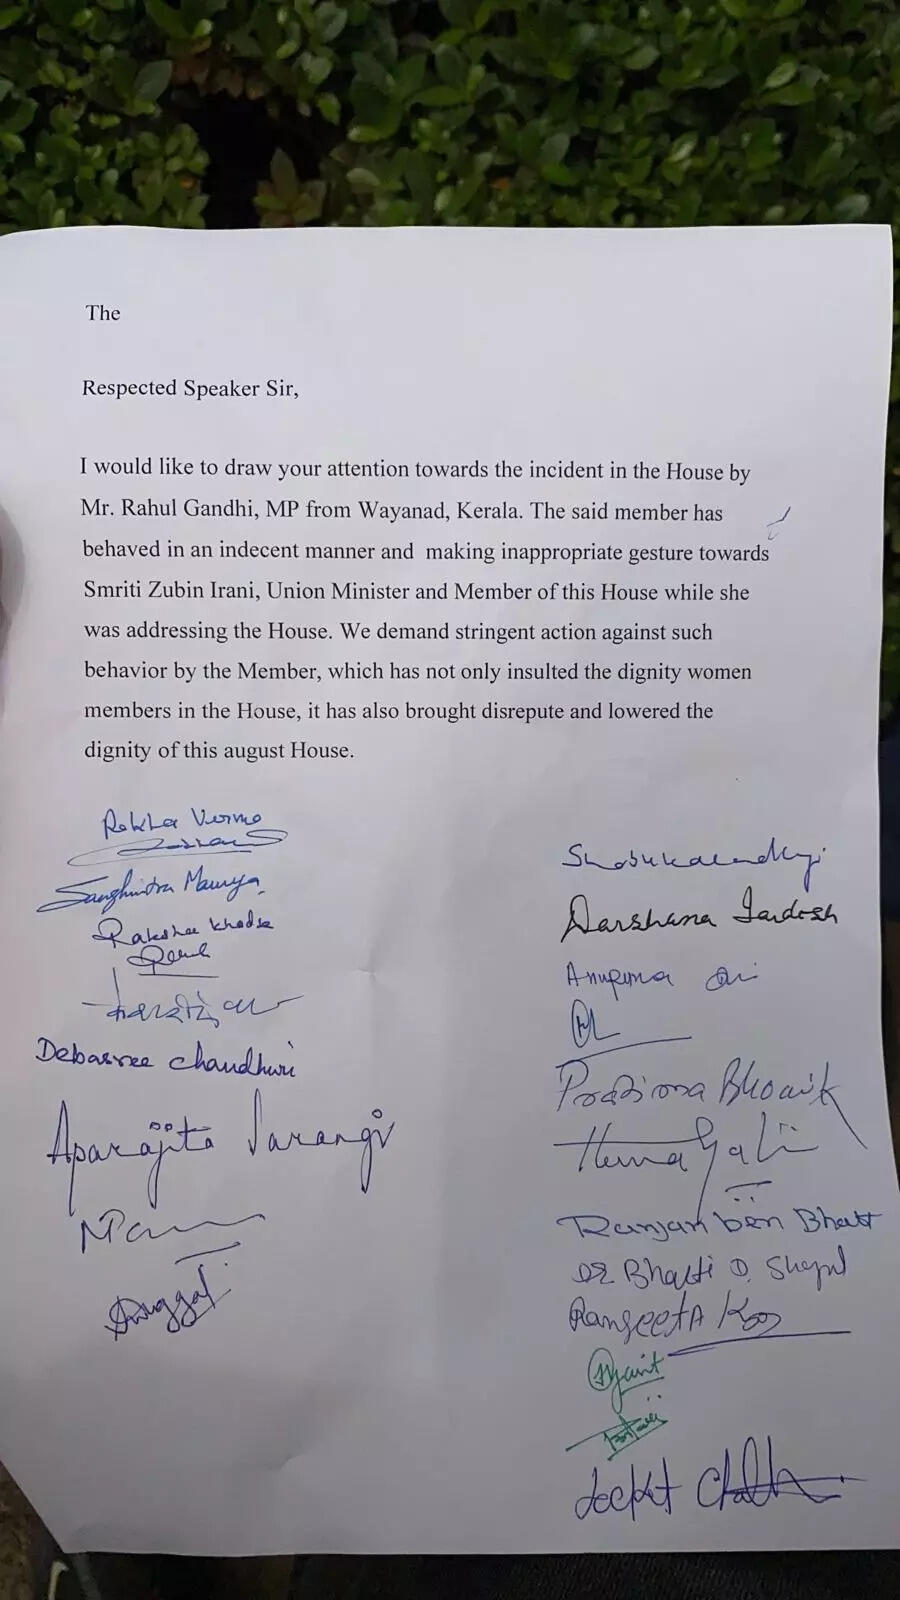 The
Respected Speaker Sir,
I would like to draw your attention towards the incident in the House by
Mr. Rahul Gandhi, MP from Wayanad, Kerala. The said member has
behaved in an indecent manner and making inappropriate gesture towards
Smriti Zubin Irani, Union Minister and Member of this House while she
was addressing the House. We demand stringent action against such
behavior by the Member, which has not only insulted the dignity women
members in the House, it has also brought disrepute and lowered the
dignity of this august House.
Rekha Verma
Sanghmitra Maurya
Raksha Khadse
Debasree Chaudhuri
Aparajita Sarangi
Darshana Jardosh
Anupriya
Pratima Bhowmik
Ranjanben Bhatt
Dr Bharti D. Shyal
Rangeeta